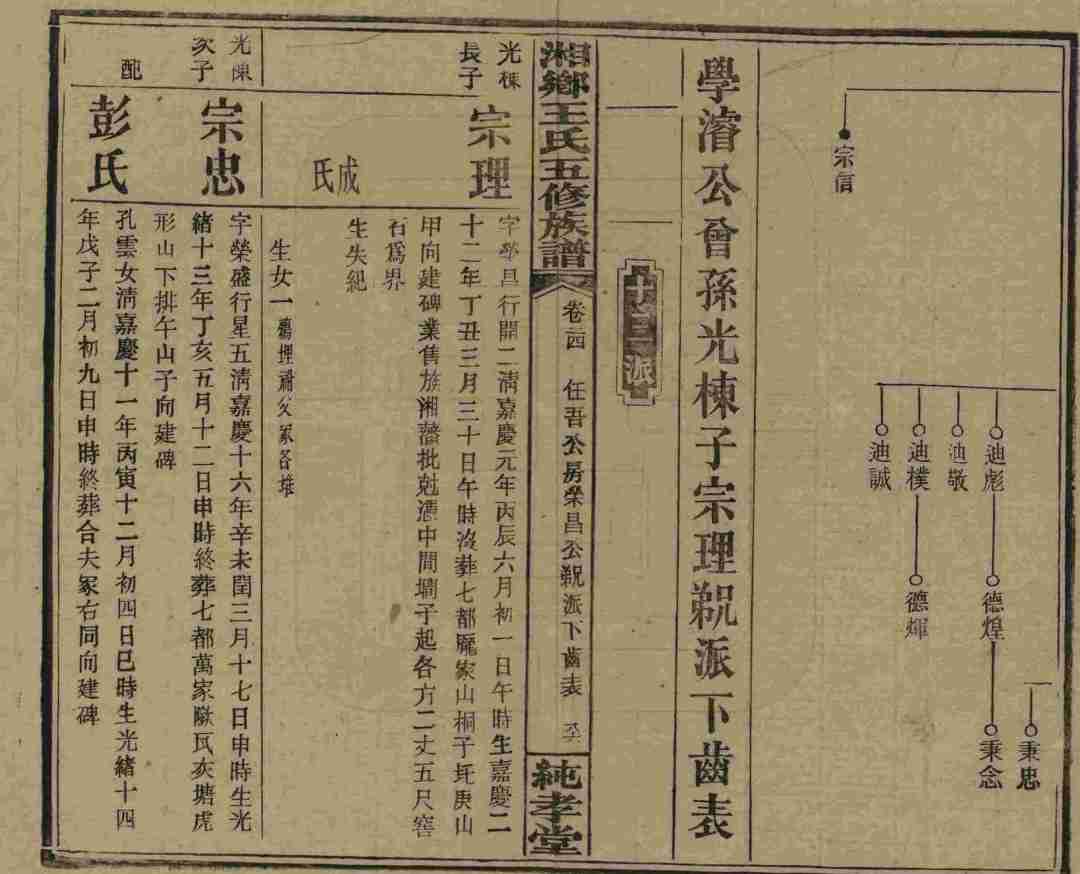 宗信
迪彪
迪敬
迪樸
迪誠
德煌
德煇
秉忠
秉念
學濬公曾孫光棟子宗理覡派下齒表
十三派
湘鄉王氏五修族譜
卷四 任吾公房榮昌公覡派下齒表
純孝堂
光棟
長子
宗理
字榮昌行開二淸嘉慶元年丙辰六月初一日午時生嘉慶二
十二年丁丑三月三十日午時沒葬七都龐家山桐子坵庚山
甲向建碑業售族湘藩批尅憑中間墈子起各方二丈五尺窖
石爲界
成氏
生失紀
生女一
光棟
次子
宗忠
字榮盛行星五淸嘉慶十六年辛未閏三月十七日申時生光
緖十三年丁亥五月十二日申時終葬七都萬家灰塘虎
形山下排午山子向建碑
配
彭氏
孔雲女淸嘉慶十一年丙寅十二月初四日巳時生光緖十四
年戊子二月初九日申時終葬合夫冢右同向建碑